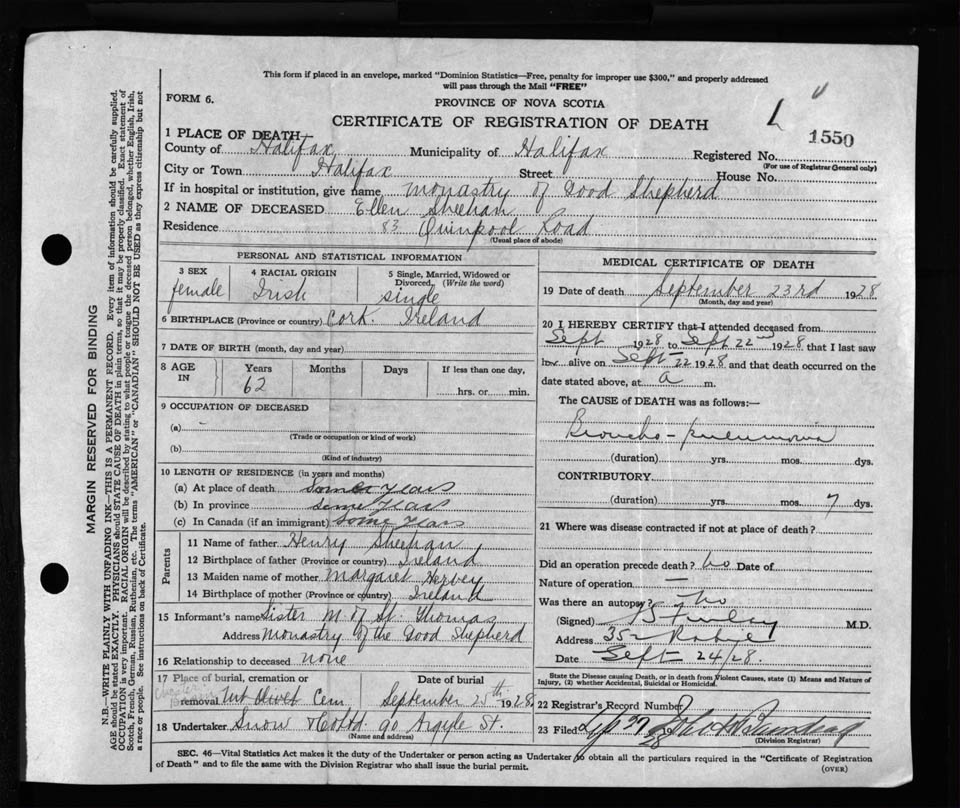 This form if placed in an envelope, marked "Dominion Statistics—Free, penalty for improper use $300," and properly addressed
will pass through the Mail "FREE"
FORM 6.
PROVINCE OF NOVA SCOTIA
CERTIFICATE OF REGISTRATION OF DEATH
1550
1 PLACE OF DEATH
County of Halifax Municipality of Halifax Registered No.
(For use of Registrar General only)
City or Town Halifax Street House No.
If in hospital or institution, give name Monastry of Good Shepherd
2 NAME OF DECEASED Ellen Sheehan
Residence 83 Quinpool Road
(Usual place of abode)
PERSONAL AND STATISTICAL INFORMATION
3 SEX female
4 RACIAL ORIGIN Irish
5 Single, Married, Widowed or Divorced, (Write the word) single
6 BIRTHPLACE (Province or country) Cork. Ireland
7 DATE OF BIRTH (month, day and year)
8 AGE IN Years Months Days If less than one day,
62 hrs. or min.
9 OCCUPATION OF DECEASED
(a) -
(Trade or occupation or kind of work)
(b)
(Kind of industry)
10 LENGTH OF RESIDENCE (in years and months)
(a) At place of death Some years
(b) In province some years
(c) In Canada (if an immigrant) some years
Parents
11 Name of father Henry Sheehan
12 Birthplace of father (Province or country) Ireland
13 Maiden name of mother Margaret Hervey
14 Birthplace of mother (Province or country) Ireland
15 Informant's name Sister M of St. Thomas
Address Monastry of the Good Shepherd
16 Relationship to deceased none
17 Place of burial, cremation or removal Date of burial
Mt Olivet Cem. September 25th 1928
18 Undertaker Snow & Co Ltd. 90 Argyle St.
(Name and address)
MEDICAL CERTIFICATE OF DEATH
19 Date of death September 23rd 1928
(Month, day and year)
20 I HEREBY CERTIFY that I attended deceased from
Sept 1928 to Sept 22nd 1928 that I last saw
h alive on Sept 22 1928 and that death occurred on the
date stated above, at a m.
The CAUSE OF DEATH was as follows:—
Broncho-pneumonia
(duration) yrs. mos. dys.
CONTRIBUTORY
(duration) yrs. mos. 7 dys.
21 Where was disease contracted if not at place of death?
Did an operation precede death? no Date of
Nature of operation —
Was there an autopsy? no
(Signed) M.D.
Address 352 Robie
Date Sept 24/28.
State the Disease causing Death, or in death from Violent Causes, state (1) Means and Nature of
Injury, (2) whether Accidental, Suicidal or Homicidal.
22 Registrar's Record Number
23 Filed 19 28
(Division Registrar)
SEC. 46—Vital Statistics Act makes it the duty of the Undertaker or person acting as Undertaker to obtain all the particulars required in the "Certificate of Registration
of Death" and to file the same with the Division Registrar who shall issue the burial permit.
(OVER)
MARGIN RESERVED FOR BINDING
N.B.—WRITE PLAINLY WITH UNFADING INK—THIS IS A PERMANENT RECORD. Every item of information should be carefully supplied.
AGE should be stated EXACTLY. PHYSICIANS should STATE CAUSE OF DEATH in plain terms, so that it may be properly classified. Exact statement of
OCCUPATION is very important. RACIAL ORIGIN will be described by stating to what people or tongue the deceased person belonged, whether English, Irish,
Scotch, French, German, Russian, Ruthenian, etc. The terms "AMERICAN" or "CANADIAN" SHOULD NOT BE USED as they express citizenship but not
a race or people. See instructions on back of Certificate.